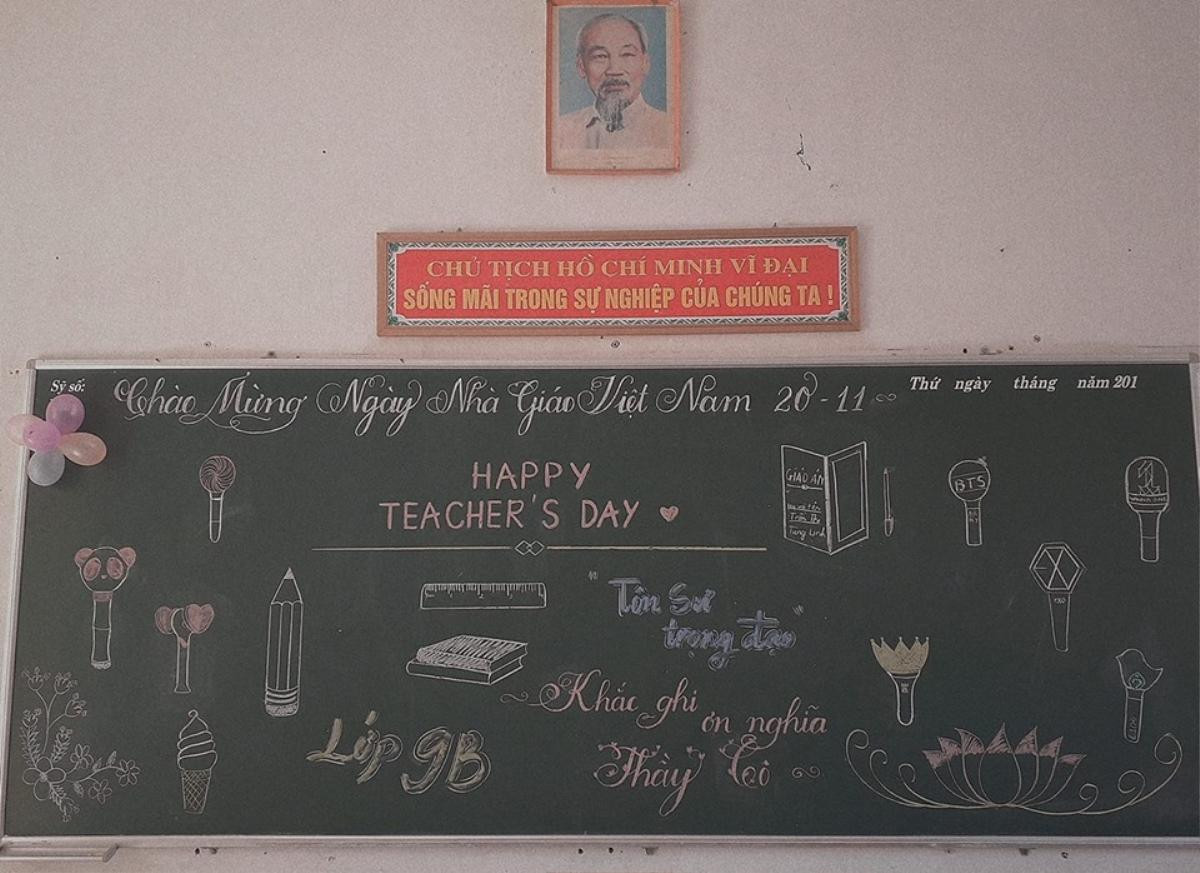 CHỦ TỊCH HỒ CHÍ MINH VĨ ĐẠI
SỐNG MÃI TRONG SỰ NGHIỆP CỦA CHÚNG TA !
Sỹ số:
Chào Mừng Ngày Nhà Giáo Việt Nam 20-11
Thứ ngày tháng năm 201
HAPPY
TEACHER'S DAY
GIÁO ÁN
Trần Thị
BTS
WANNA ONE
EXO
"Tôn Sư
trọng đạo"
Khắc ghi
ơn nghĩa
Thầy Cô
Lớp 9B